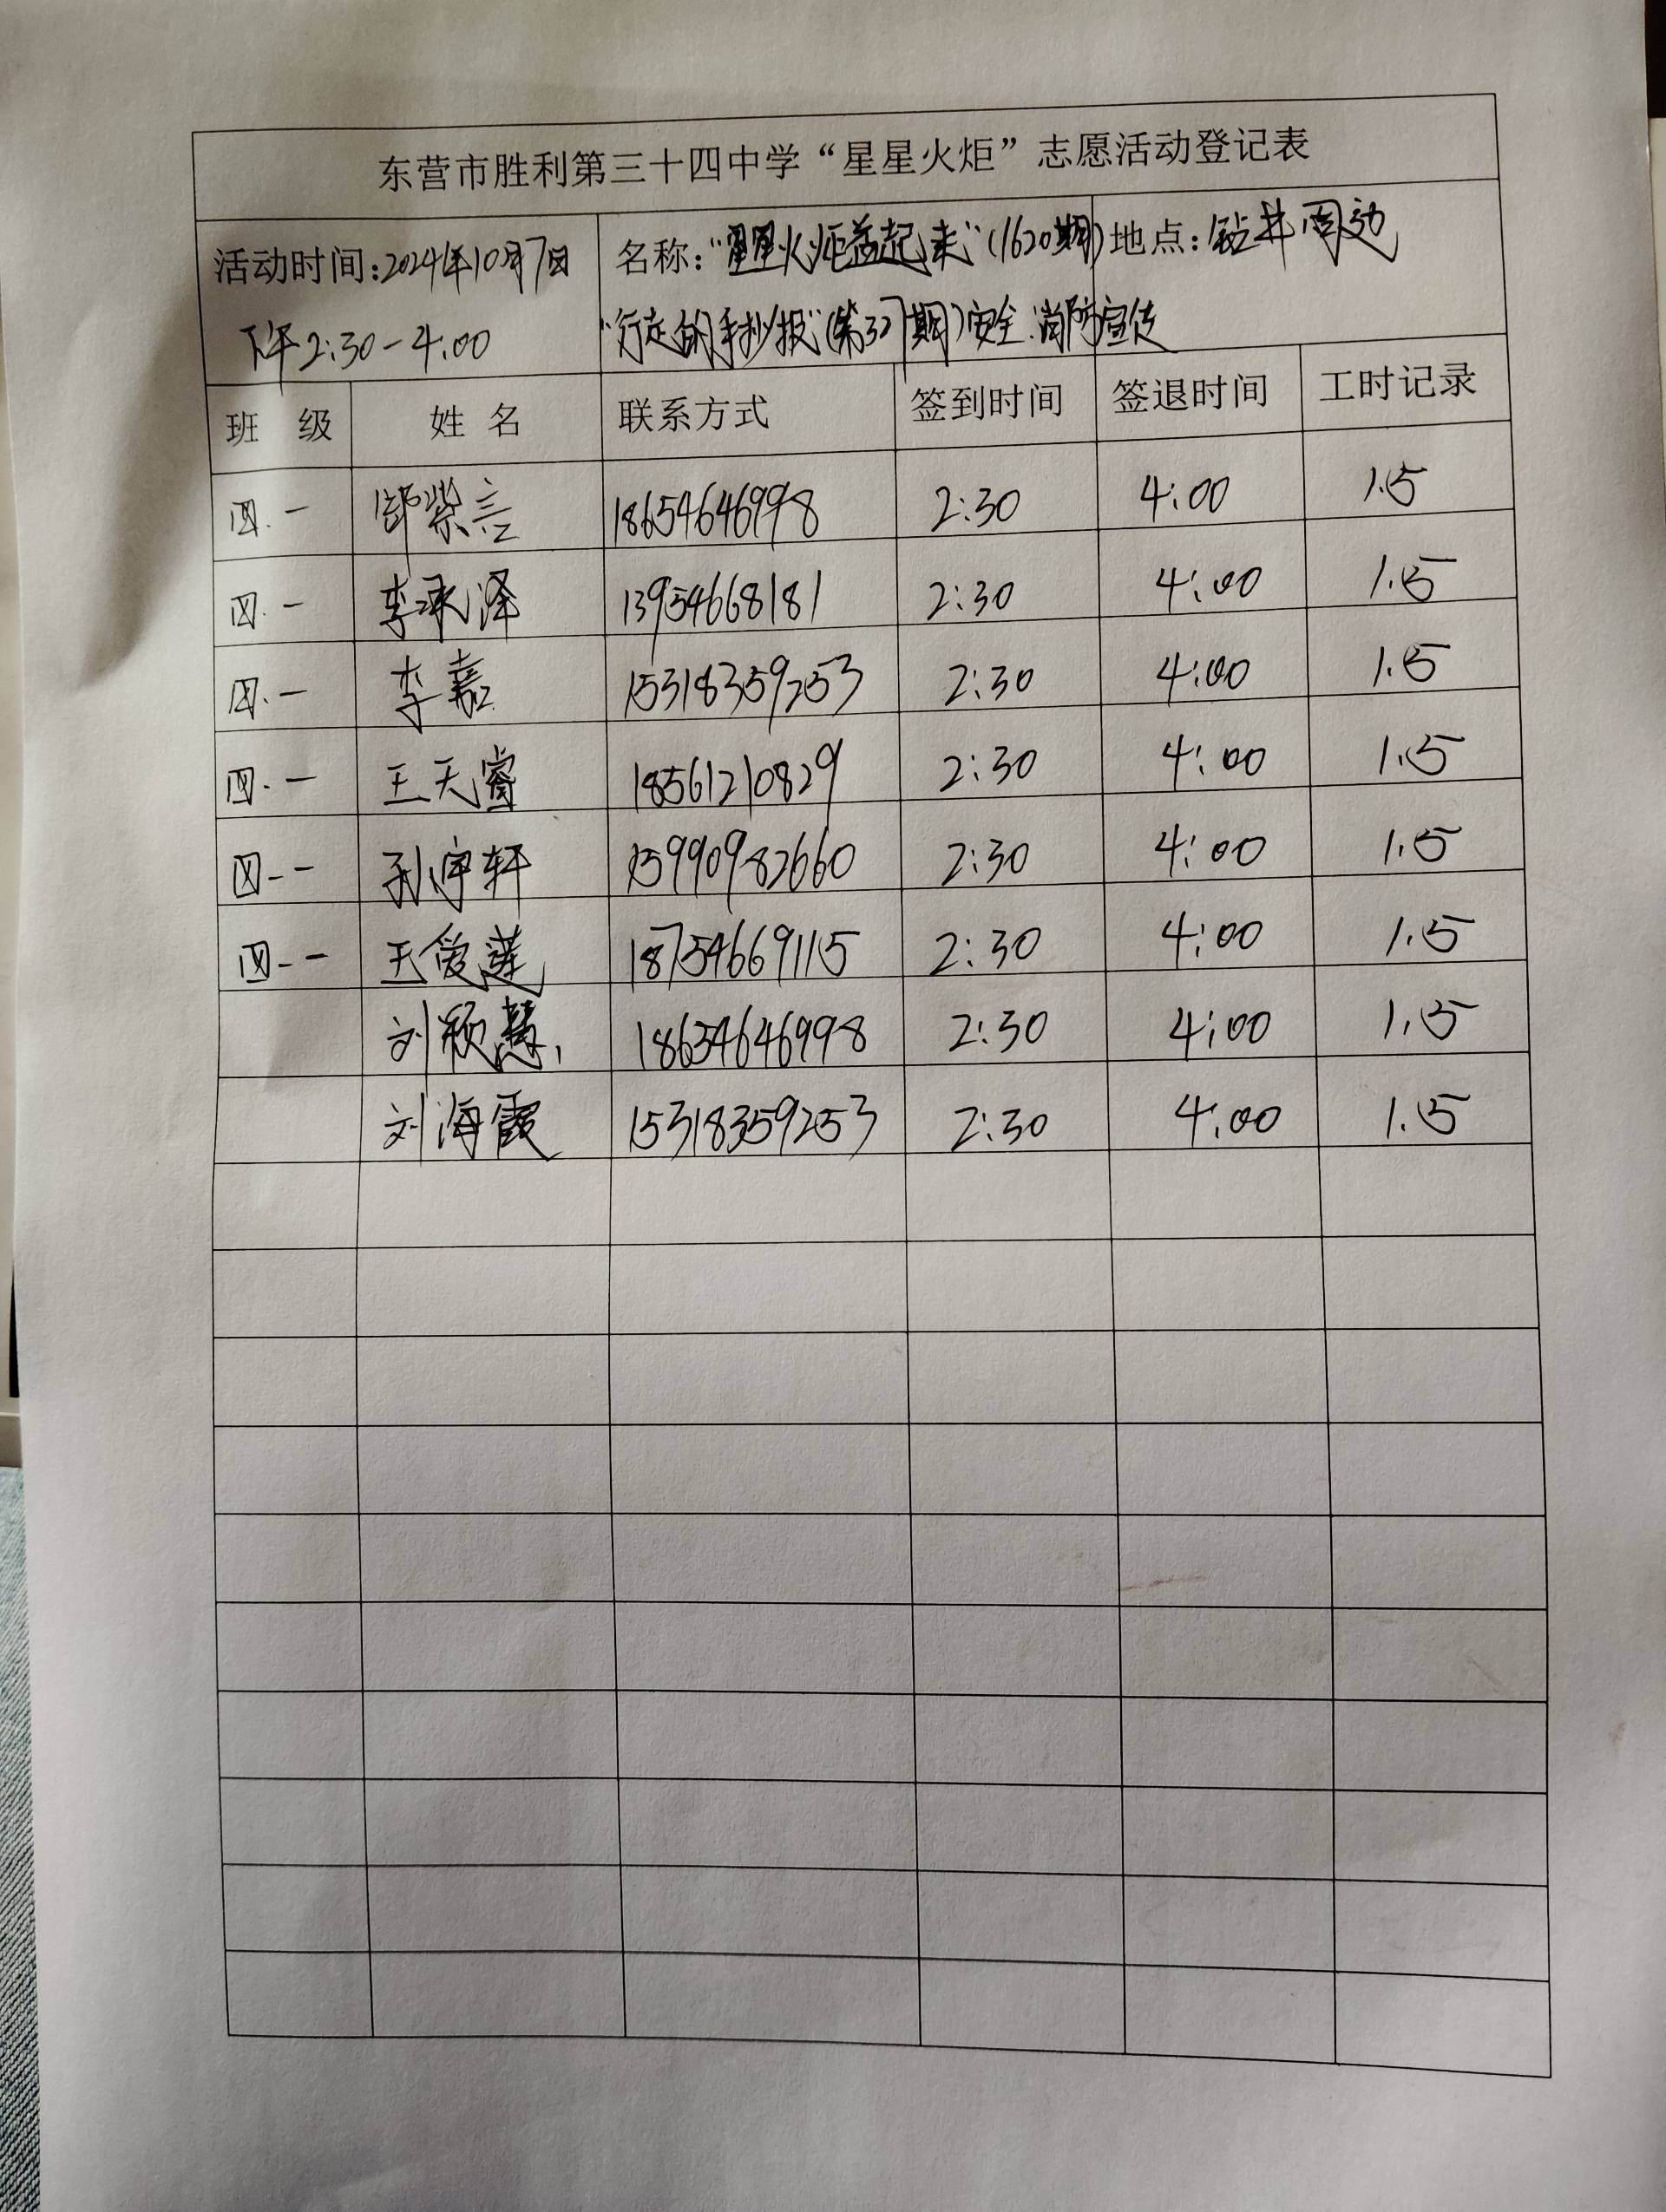 东营市胜利第三十四中学“星星火炬”志愿活动登记表
活动时间:2024年10月7日 名称:“星星火炬益起来”(1620期) 地点:钻井周边
下午2:30-4:00 “行走的手抄报”(第37期)安全.消防宣传
班 级 姓 名 联系方式 签到时间 签退时间 工时记录
四.一 紫言 18654646998 2:30 4:00 1.5
四.一 李承泽 13954668181 2:30 4:00 1.5
四.一 李嘉 15318359253 2:30 4:00 1.5
四.一 王天睿 18561210829 2:30 4:00 1.5
四.一 孙宇轩 15990982660 2:30 4:00 1.5
四.一 王爱莲 18754669115 2:30 4:00 1.5
刘颖慧 18654646998 2:30 4:00 1.5
刘海霞 15318359253 2:30 4:00 1.5